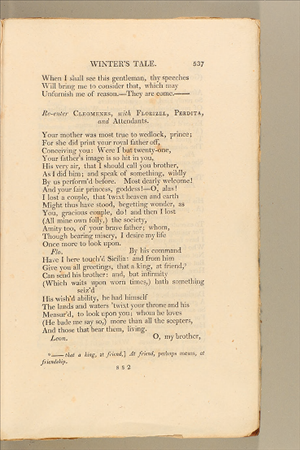 WINTER'S TALE. 537
When I shall see this gentleman, thy speeches
Will bring me to consider that, which may
Unfurnish me of reason.—They are come.——
Re-enter CLEOMENES, with FLORIZEL, PERDITA,
and Attendants.
Your mother was most true to wedlock, prince;
For she did print your royal father off,
Conceiving you: Were I but twenty-one,
Your father's image is so hit in you,
His very air, that I should call you brother,
As I did him; and speak of something, wildly
By us perform'd before. Most dearly welcome!
And your fair princess, goddess!—O, alas!
I lost a couple, that 'twixt heaven and earth
Might thus have stood, begetting wonder, as
You, gracious couple, do! and then I lost
(All mine own folly,) the society,
Amity too, of your brave father; whom,
Though bearing misery, I desire my life
Once more to look upon.
Flo. By his command
Have I here touch'd Sicilia: and from him
Give you all greetings, that a king, at friend,
Can send his brother: and, but infirmity
(Which waits upon worn times,) hath something
seiz'd
His wish'd ability, he had himself
The lands and waters 'twixt your throne and his
Measur'd, to look upon you; whom he loves
(He bade me say so,) more than all the scepters,
And those that bear them, living.
Leon. O, my brother,
—— that a king, at friend,] At friend, perhaps means, at
friendship.